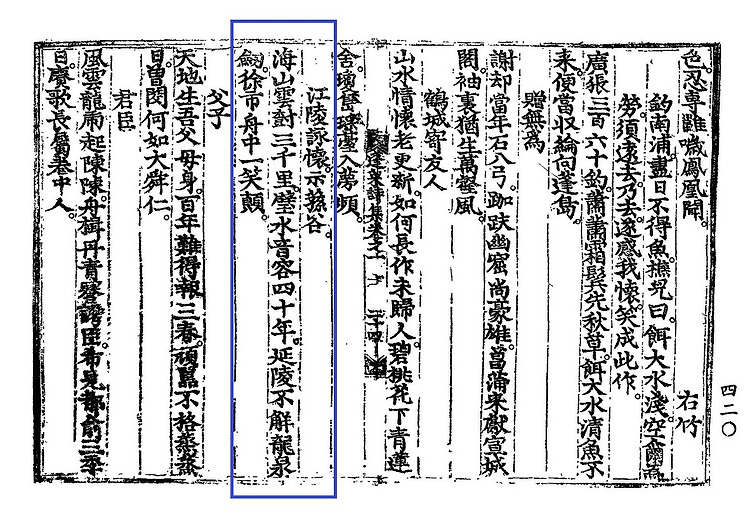 色忍專雖嘰鳳凰閒。
右竹
釣南浦盡日不得魚撫咒曰餌大水淺空
勞須遠去乃去遂感我懷笑成此作。
廣張三百六十鈎蕭蕭霜鬂先秋草餌大水清魚不
來便當収綸向蓬島。
贈無為
謝却當年石八弓跏趺幽窟尚豪雄菖蒲來獻宣城
閤袖裏猶生萬壑風。
鶴城寄友人
山水情懷老更新如何長作未歸人碧桃花下青蓮
舍瑤臺入夢頻。
江陵詠懷示蓀谷。
海山雲對三千里璧水音容四十年延陵不解龍泉
劒徐市舟中一笑顛。
父子
天地生吾父母身百年難得報三春頑嚚不格烝烝
日曾閔何如大舜仁。
君臣
風雲龍雨起陳陳舟楫丹青
日賡歌長屬卷中人。
四二〇